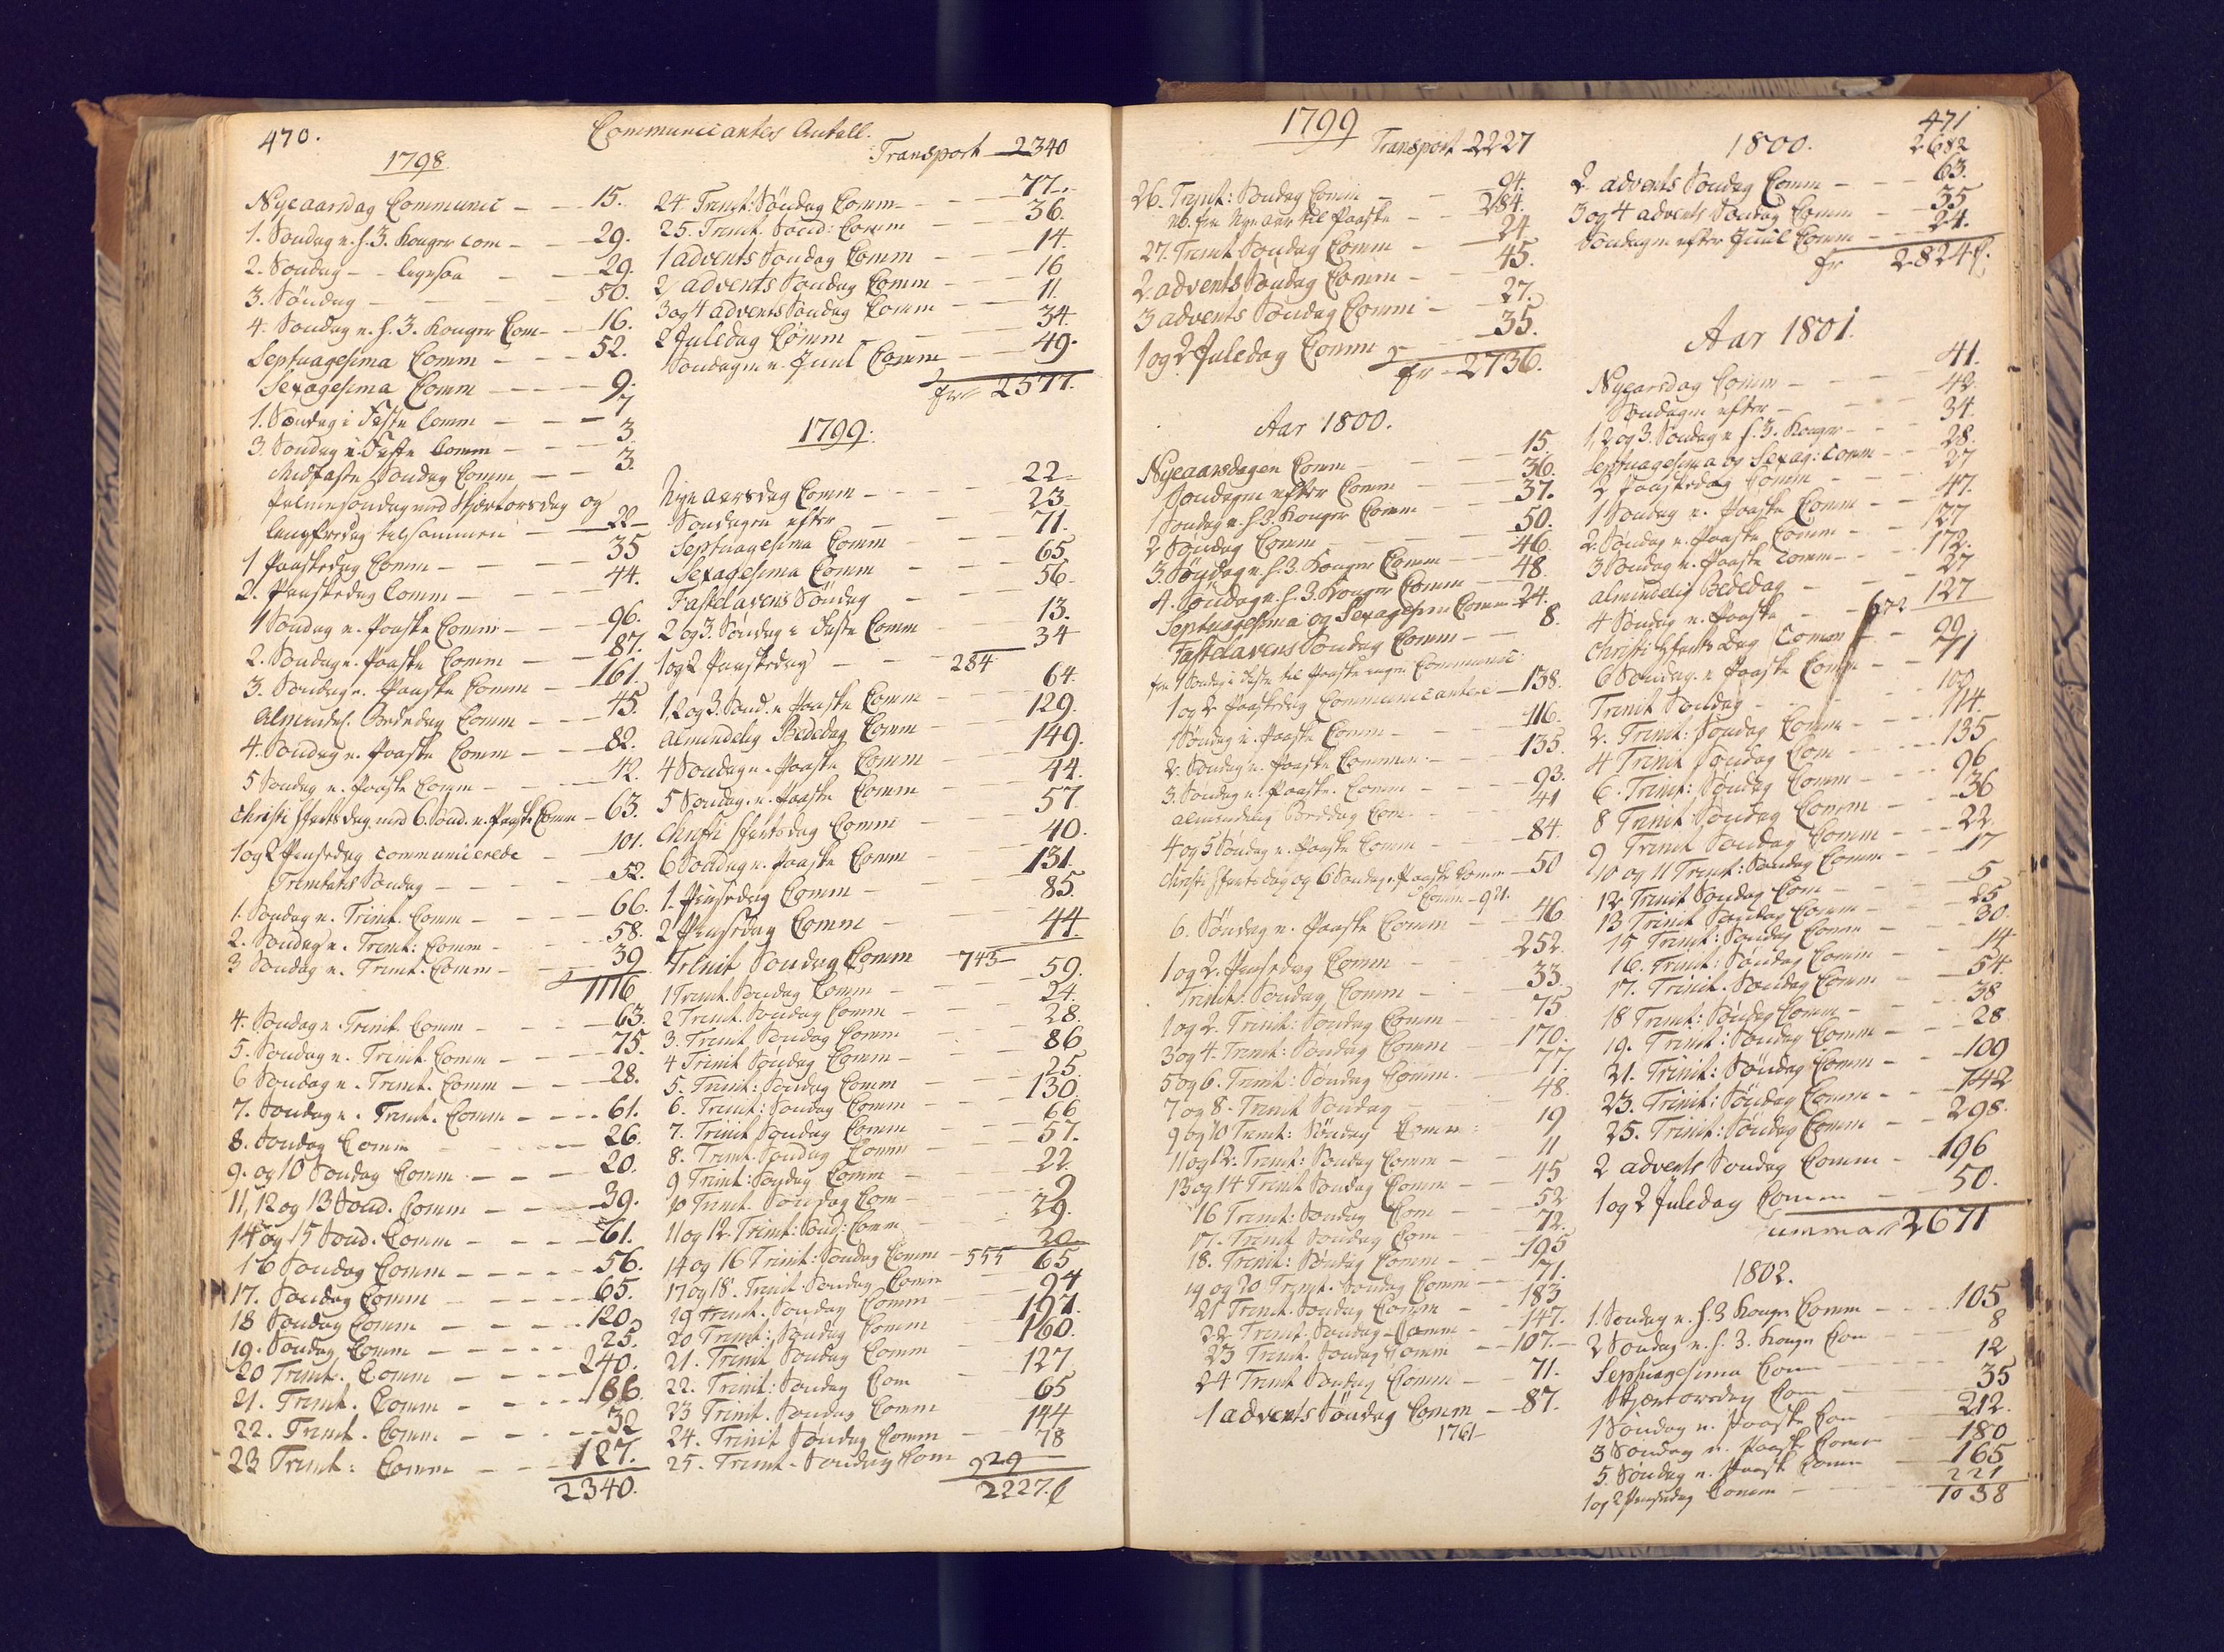 470.
Communicantes Antall.
1798
Nyeaarsdag Communic - - 15.
1. Søndag e. h. 3. Konger Com - - 29.
2. Søndag - - ligesaa - - 29.
3. Søndag - - - - 50.
4. Søndag e. h. 3. Konger Com - - 16.
Septuagesima Comm - - - 52.
Sexagesima Comm - - - - 9.
1. Søndag i Faste Comm - - - 7
3. Søndag i Faste Comm - - - 3.
Midfaste Søndag Comm - - 3.
Palmesøndag med Skjærtorsdag og
Langfredag tilsammen - - 22 -
1 Paaskedag Comm - - - - 35
2. Paaskedag Comm - - - - 44.
1 Søndag e. Paaske Comm - - - 96.
2. Søndag e. Paaske Comm - - 87.
3. Søndag e. Paaske Comm - - 161.
Almindel. Bededag Comm - - - 45.
4. Søndag e. Paaske Comm - - - 82.
5 Søndag e. Paaske Comm - - - 42.
Christi Hfartsdag med 6. Sønd. e. Paaske Comm - 63.
1 og 2 Pinsedag communicerede - 101.
Trinitatis Søndag - - - - 52.
1. Søndag e. Trinit. Comm - - - - 66.
2. Søndag e. Trinit: Comm - - - - 58.
3 Søndag e. Trinit. Comm - - - 39
1116
4. Søndag e. Trinit. Comm - - - 63.
5. Søndag e. Trinit Comm - - - - 75.
6 Søndag e. Trinit. Comm - - - 28.
7. Søndag e. Trinit. Comm - - - - 61.
8. Søndag Comm - - - - 26.
9. og 10 Søndag Comm - - - - 20.
11, 12 og 13 Sønd. Comm - - - - 39.
14 og 15 Sønd. Comm - - - - - 61.
16 Søndag Comm - - - - - 56.
17. Søndag Comm - - - - 65.
18 Søndag Comm - - - - - 120.
19. Søndag Comm - - - - - - 25.
20 Trinit. Comm - - - - 240.
21. Trinit. Comm - - - - 186.
22. Trinit. Comm - - - - - 32
23 Trinit: Comm - - - 127.
2340.
Transport - 2340
24 Trinit: Søndag Comm - - - 77.
25. Trinit. Sønd: Comm - - - 36.
1 advents Søndag Comm - - - 14.
2 advents Søndag Comm - - - 16
3 og 4 advents Søndag Comm - - 11.
2 Juledag Comm - - - 34.
Søndagen e. Juul Comm - - 49.
fr 2577.
1799.
Nyeaarsdag Comm - - - - 22 -
Søndagen efter - - - 23
Septuagesima Comm - - - 71.
Sexagesima Comm - - - 65
Fastelavens Søndag - - - 56 -
2 og 3. Søndag i Faste Comm - - 13.
1 og 2 Paaskedag - - 284 34
1, 2 og 3. Sønd. e Paaske Comm - - - 64.
Almindelig Bededag Comm - - - 129.
4 Søndag e. Paaske Comm - - 149.
5 Søndag. e. Paaske Comm - - - 44.
Christi Hfartsdag Comm - - - 57.
6 Søndag e. Paaske Comm - - - 40.
1. Pinsedag Comm - - - - 131.
2 Pinsedag Comm - - - - 85.
Trinit Søndag Comm - 743 - 44.
1 Trinit. Søndag Comm - - - 59.
2 Trinit. Søndag Comm - - - 24.
3. Trinit Søndag Comm - - 28.
4 Trinit Søndag Comm - - - 86
5. Trinit: Søndag Comm - - 25.
6. Trinit: Søndag Comm - - - 130.
7. Trinit Søndag Comm - - - 66
8. Trinit Søndag Comm - - - 57.
9 Trinit: Søndag Comm - - - 22.
10 Trinit. Søndag Com - - - 9
11 og 12. Trinit: Sønd: Comm - - 29.
14 og 16 Trinit: Søndag Comm - 555 20
17 og 18. Trinit Søndag Comm - 65
19 Trinit. Søndag Comm - 94
20 Trinit: Søndag Comm - 197.
21. Trinit Søndag Comm - - 160.
22. Trinit: Søndag Com - 127
23 Trinit. Søndag Comm - 65
24. Trinit Søndag Comm - 144
25. Trinit. Søndag Com 929 78
2227.
1799
Transport 2227
26. Trinit: Søndag Comm - - 94.
NB. fra Nye aar til Paaske - - 284.
27. Trinit Søndag Comm - - 24.
2. advents Søndag Comm - - 45.
3 advents Søndag Comm - - 27.
1 og 2 Juledag Comm - - 35.
fr - 2736.
Aar 1800.
Nyeaarsdagen Comm - - - 15
Søndagen efter Comm - - - 36.
1 Søndag e. h. 3. Konger Comm - - 37.
2 Søndag Comm - - - - 50.
3. Søndag e. h. 3. Konger Comm - - 46.
4. Søndag e. h. 3. Konger Comm - - 48.
Septuagesima og Sexagesima Comm - 24.
Fastelavens Søndag Comm - - 8.
fra 1 Søndag i Faste til Paaske ingen Communic:
1 og 2 Paaskedag Communicantere - 138.
1 Søndag e. Paaske Comm - - - 416.
2. Søndag e. Paaske Commun - - - 135.
3. Søndag e. Paaske. Comm - - - 93.
Almindelig Bededag Com - - - 41
4 og 5 Søndag e. Paaske Comm - - - 84.
Christi Hfartsdag og 6 Søndag e. Paaske Comm - 50
Comm - 921.
6. Søndag e. Paaske Comm - - 46
1 og 2. Pinsedag Comm - - - 252.
Trinit. Søndag Comm - - - 33.
1 og 2. Trinit: Søndag Comm - - 75
3 og 4. Trinit: Søndag Comm - - 170.
5 og 6. Trinit: Søndag Comm. - - 77.
7 og 8. Trinit Søndag - - - 48.
9 og 10 Trinit: Søndag Comm: 19
11 og 12. Trinit: Søndag Comm - - 11
13 og 14 Trinit Søndag Comm - - 45
16 Trinit: Søndag Com - - 52
17. Trinit Søndag Com - - 72.
18. Trinit: Søndag Comm - - 195
19 og 20 Trinit. Søndag Comm - - 71.
21 Trinit. Søndag Comm - - 183
22 Trinit. Søndag Comm - - 147.
23 Trinit. Søndag Comm - - 107. -
24 Trinit Søndag Comm - - 71.
1 advents Søndag Comm - - 87.
1761 -
471
1800. 2682
2. advents Søndag Comm - - - 63.
3 og 4 advents Søndag Comm - - 35
Søndagen efter Juul Comm - - 24.
fr 2824.
Aar 1801.
Nyeaarsdag Comm - - - 41.
Søndagen efter - - - 42.
1, 2 og 3. Søndag e h. 3. Konger - - 34.
Septuagesima og Sexag: Comm - - 28.
2 Paaskedag Comm - - - 27
1 Søndag e. Paaske Comm - - 47.
2. Søndag e. Paaske Comm - - 127
3 Søndag e. Paaske Comm - - - 172.
Almindelig Bededag - - - 27
4 Søndag e. Paaske - - 672 127
Christi Hfarts Dag Comm - - 29.
6 Søndag e Paaske Comm - - 71
Trinit Søndag - - - 109
2. Trinit: Søndag Comm - - - 114.
4 Trinit Søndag Com - - - 135
6. Trinit: Søndag Comm - - - 96
8 Trinit Søndag Comm - - - 36
9 Trinit Søndag Comm - - - 22.
10 og 11 Trinit: Søndag Comm - - - 17
12 Trinit Søndag Com - - - 5
13 Trinit Søndag Comm - - - 25
15 Trinit: Søndag Comm - - - 30.
16. Trinit: Søndag Comm - - - 14
17. Trinit. Søndag Comm - - - 54.
18 Trinit: Søndag Comm - - - 38
19. Trinit: Søndag Comm - - - 28
21. Trinit: Søndag Comm - - - 109
23. Trinit: Søndag Comm - - - 142
25. Trinit: Søndag Comm - - 298.
2 advents Søndag Comm - 196
1 og 2 Juledag Comm - - - 50.
Summa 2671
1802.
1. Søndag e. h. 3 Konger Comm - - - 105
2 Søndag e. h. 3. Konger Com - - 8
Septuagesima Com - - - 12
Skjærtorsdag Com - - - 35
1 Søndag e. Paaske Com - - 212.
3 Søndag e. Paaske Comm - - 180
5. Søndag e. Paaske Comm - - 165
1 og 2 Pinsedag Comm - - - 221
1038